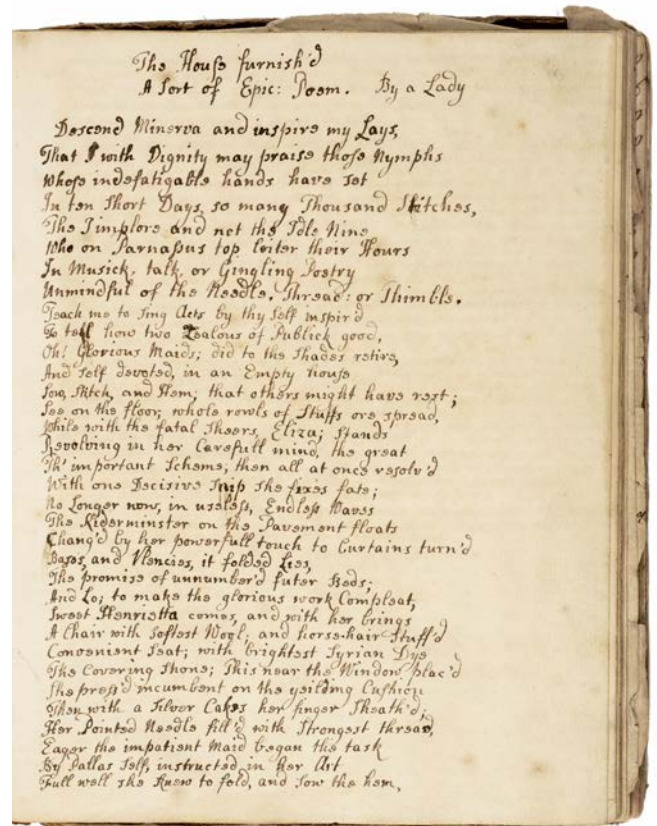 The House furnish'd
A Sort of Epic: Poem. By a Lady
Descend Minerva and inspire my Lays,
That I with Dignity may praise those Nymphs
Whose indefatigable hands have set
In ten Short Days, so many Thousand Stitches,
The I implore and not the Idle Nine
Who on Parnassus top loiter their Hours
In Musick, talk, or Gingling Poetry
Unmindful of the Needle, Thread: or Thimble.
Teach me to Sing Acts by thy Self inspir'd
To tell how two Zealous of Publick good,
Oh! Glorious Maids; did to the Shades retire,
And Self devoted, in an Empty house
Sow, Stitch, and Hem; that others might have rest;
See on the floor, whole rowls of Stuffs are spread,
While with the fatal Sheers, Eliza; Stands
Revolving in her Carefull mind, the great
Th' important Scheme, then all at once resolv'd
With one Decisive Snip She fixes fate;
No Longer now, in useless, Endless Waves
The Kiderminster on the Pavement floats
Chang'd by her powerfull touch to Curtains turn'd
Bases, and Vlencies, it folded Lies,
The promise of unnumber'd futer Beds;
And Lo; to make the glorious work Compleat,
Sweet Henrietta comes, and with her brings
A Chair with Softest Wool; and horse-hair Stuff'd
Convenient Seat; with brightest Syrian Dye
The Covering Shone; This near the Window plac'd
She press'd incumbent on the yeilding Cushion
Then with a Silver Cakes her finger Sheath'd;
Her Pointed Needle fill'd with Strongest thread,
Eager the impatient Maid began the task
By Pallas Self, instructed in her Art
Full well she knew to fold, and Sow the hem,